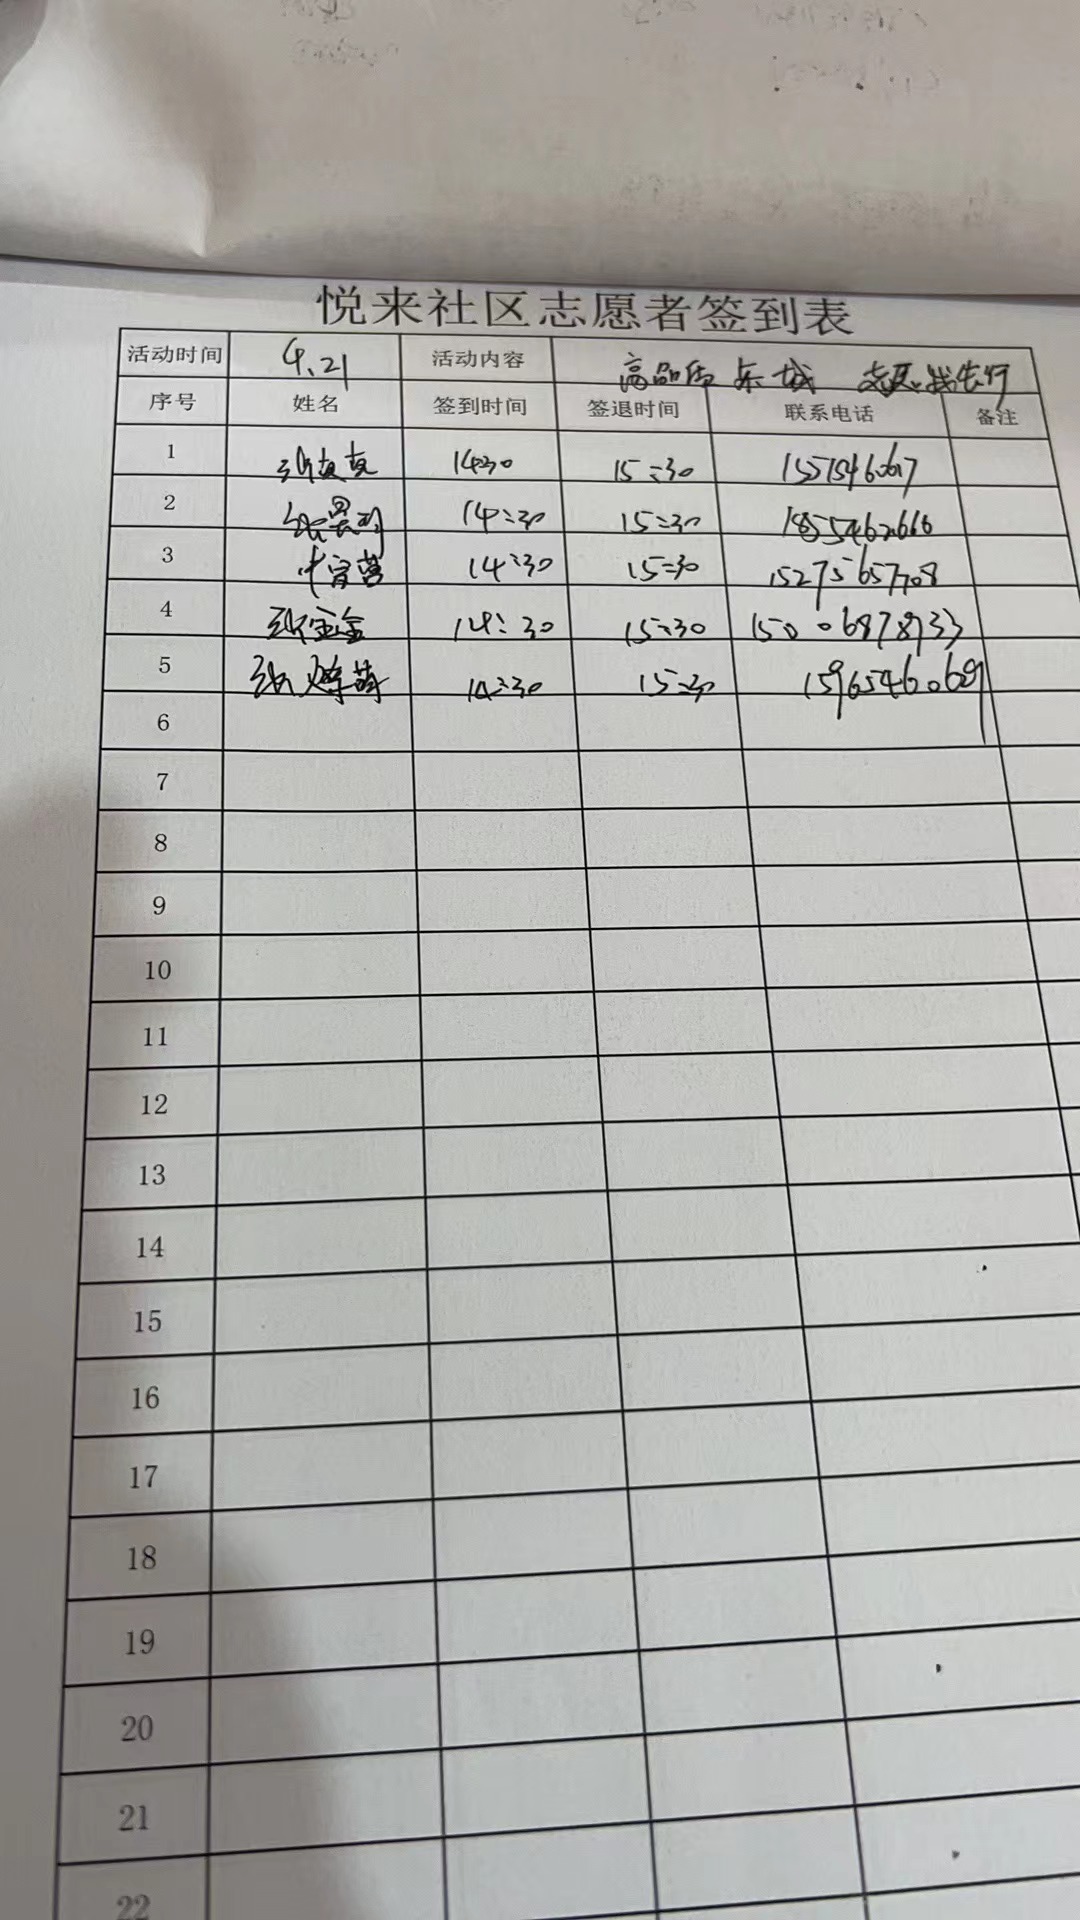 悦来社区志愿者签到表
活动时间 4.21 活动内容 高品质 东城 志愿我先行
序号 姓名 签到时间 签退时间 联系电话 备注
1 14:30 15:30
2 14:30 15:30 18554626666
3 14:30 15:30 15275657708
4 张宝金 14:30 15:30 15006878933
5 14:30 15:30 15965460609
6
7
8
9
10
11
12
13
14
15
16
17
18
19
20
21
22